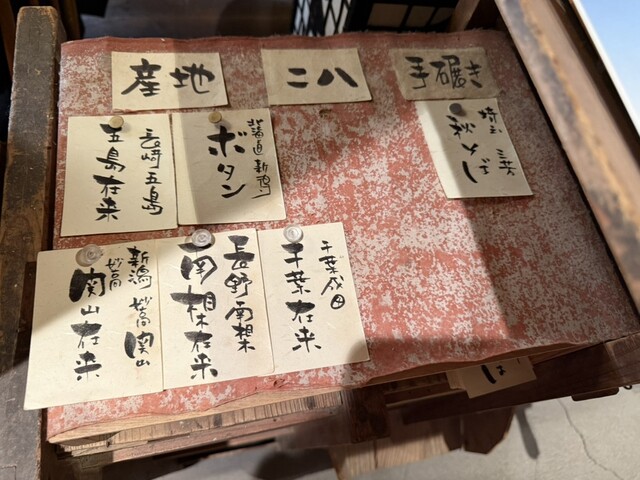 産地
二八
手碾き
長崎 五島
五島在来
北海道 新得
ボタン
埼玉 三芳
秋そば
新潟 妙高 関山
妙高
関山在来
長野 南相木
南相木在来
千葉 成田
千葉在来
ば